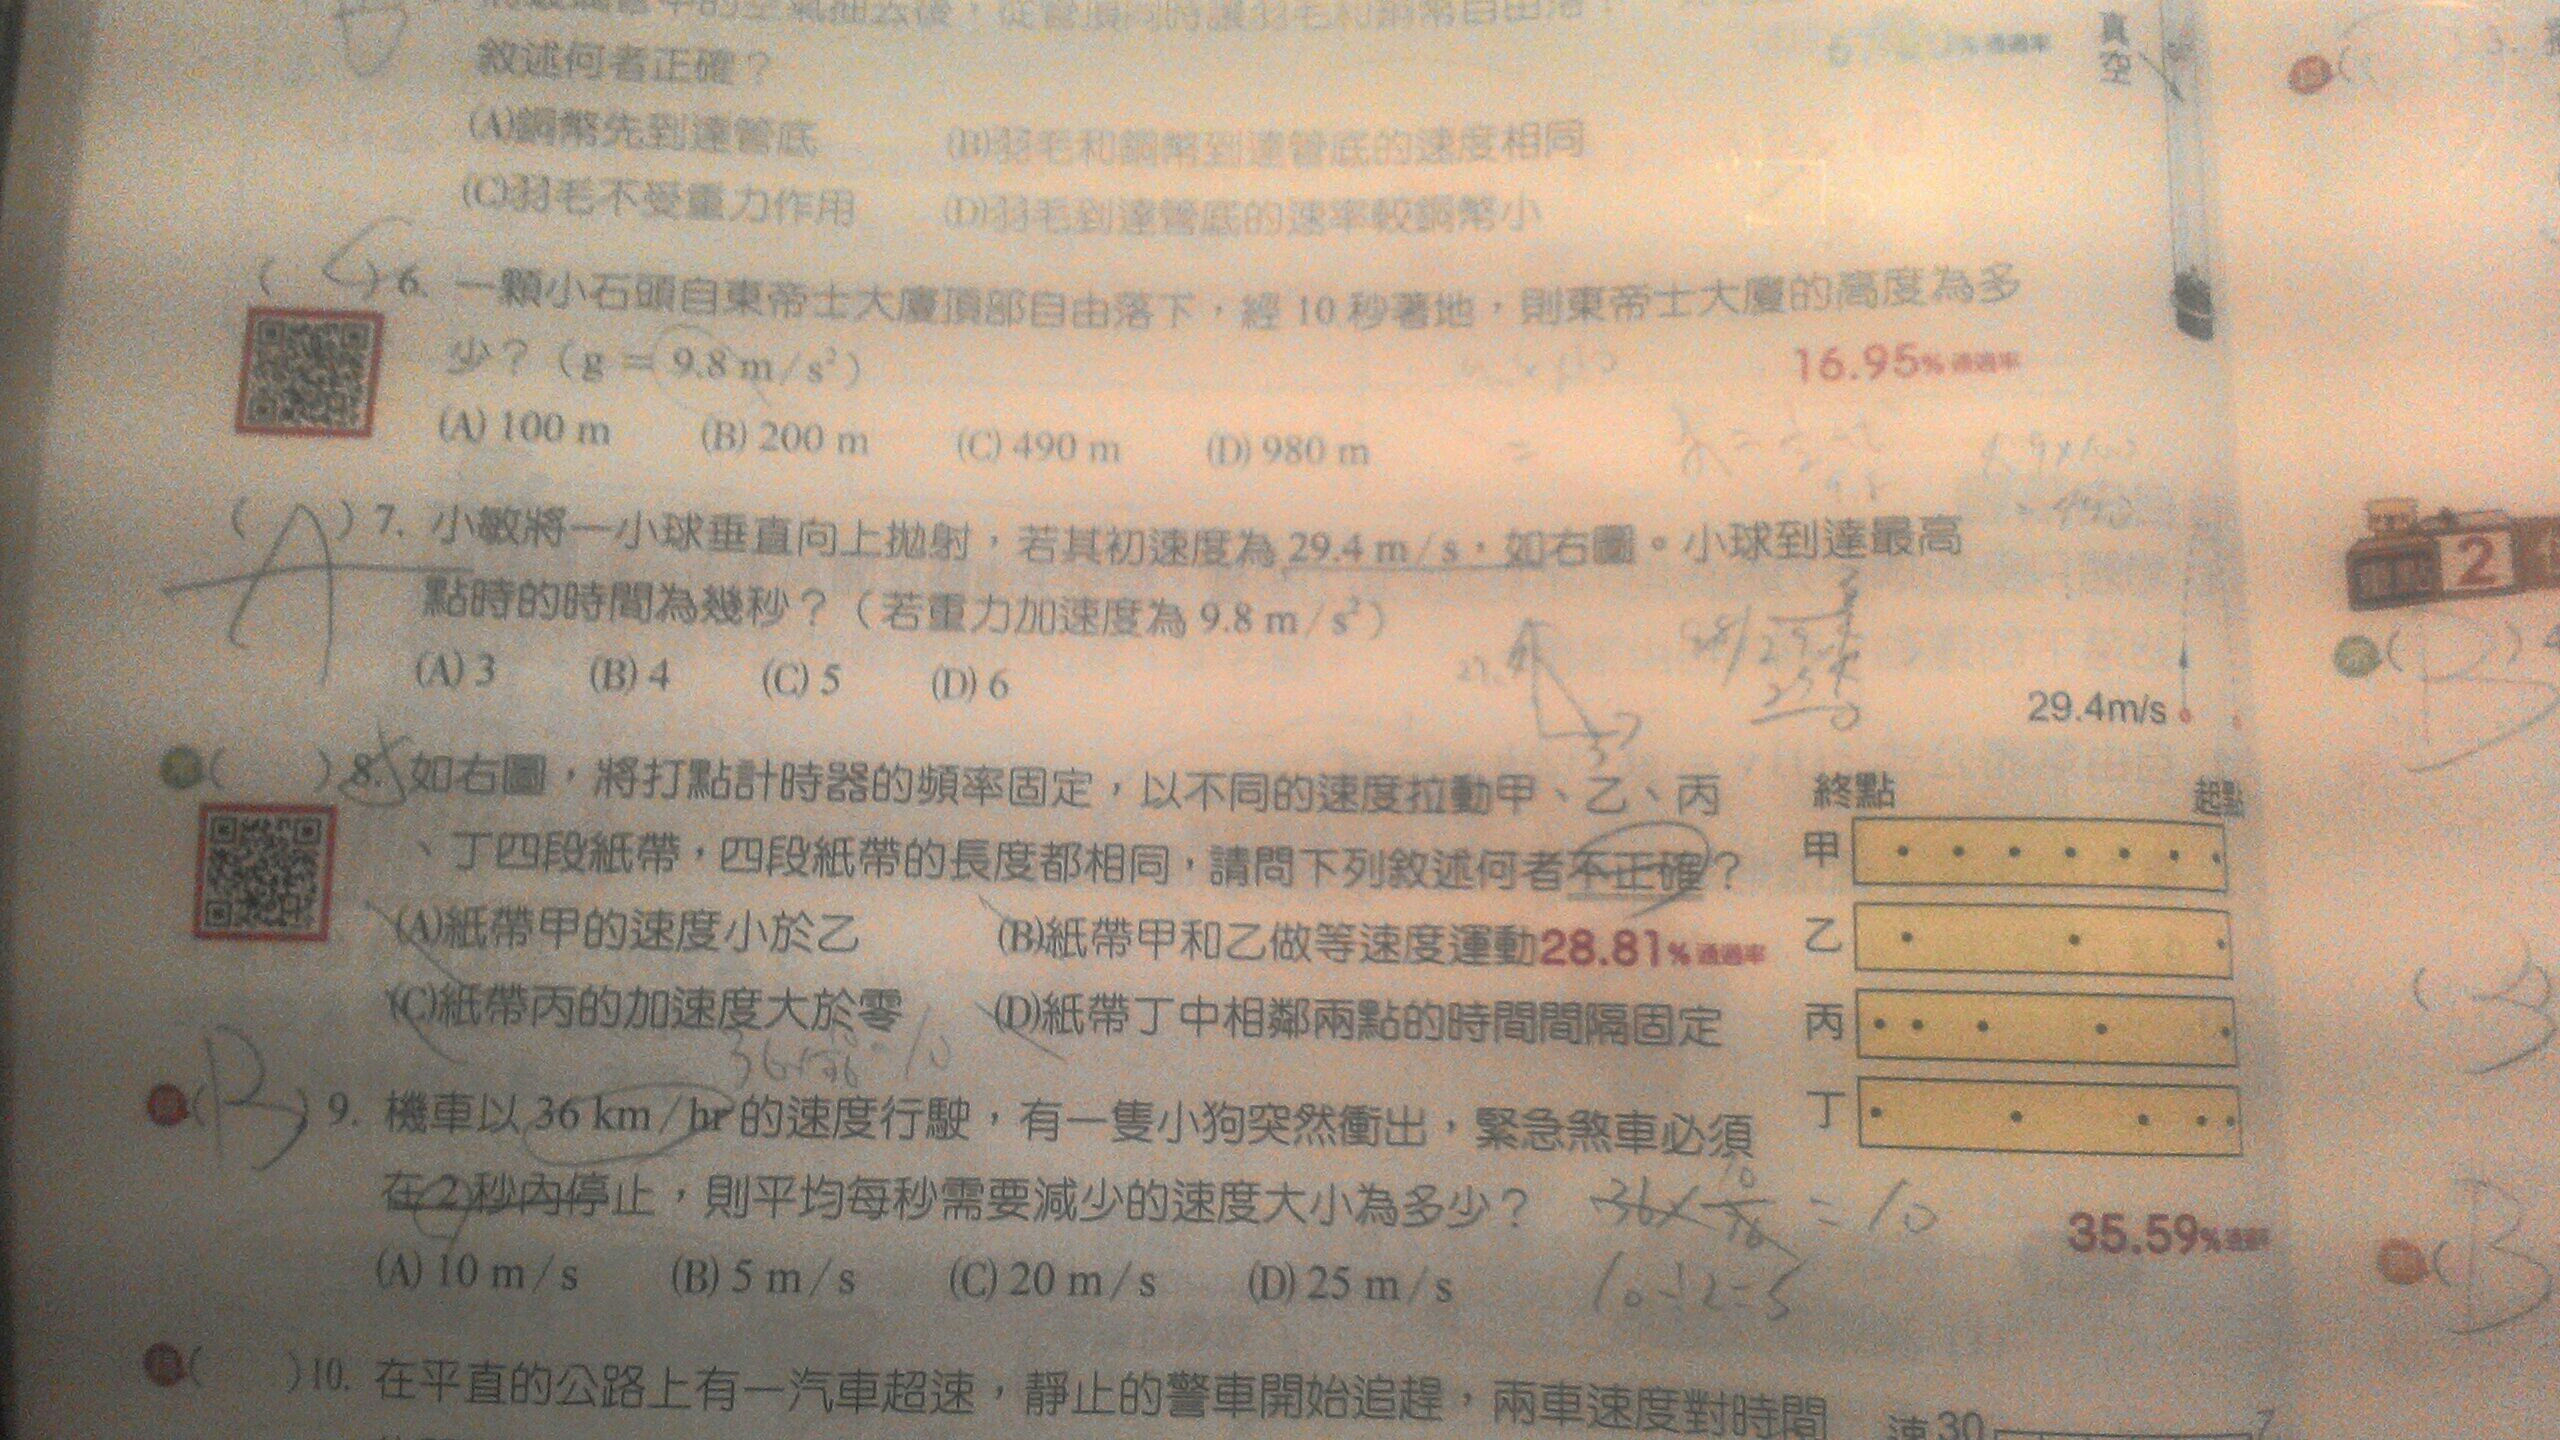 敘述何者正確？
(A)銅幣先到達管底 (B)羽毛和銅幣到達管底的速度相同
(C)羽毛不受重力作用 (D)羽毛到達管底的速率較銅幣小
真空
( C )6. 一顆小石頭自東帝士大廈頂部自由落下，經 10 秒著地，則東帝士大廈的高度為多
少？（g = 9.8 m/s²）
16.95% 通過率
(A) 100 m (B) 200 m (C) 490 m (D) 980 m
( A )7. 小敏將一小球垂直向上拋射，若其初速度為 29.4 m/s，如右圖。小球到達最高
點時的時間為幾秒？（若重力加速度為 9.8 m/s²）
(A) 3 (B) 4 (C) 5 (D) 6
29.4m/s
( )8. 如右圖，將打點計時器的頻率固定，以不同的速度拉動甲、乙、丙
、丁四段紙帶，四段紙帶的長度都相同，請問下列敘述何者不正確？
(A)紙帶甲的速度小於乙 (B)紙帶甲和乙做等速度運動 28.81% 通過率
(C)紙帶丙的加速度大於零 (D)紙帶丁中相鄰兩點的時間間隔固定
終點 起點
甲
乙
丙
丁
( B )9. 機車以 36 km/hr 的速度行駛，有一隻小狗突然衝出，緊急煞車必須
在 2 秒內停止，則平均每秒需要減少的速度大小為多少？
36× 10/36 = 10
35.59%
(A) 10 m/s (B) 5 m/s (C) 20 m/s (D) 25 m/s
10÷2=5
( )10. 在平直的公路上有一汽車超速，靜止的警車開始追趕，兩車速度對時間
速 30
2
B
B
B